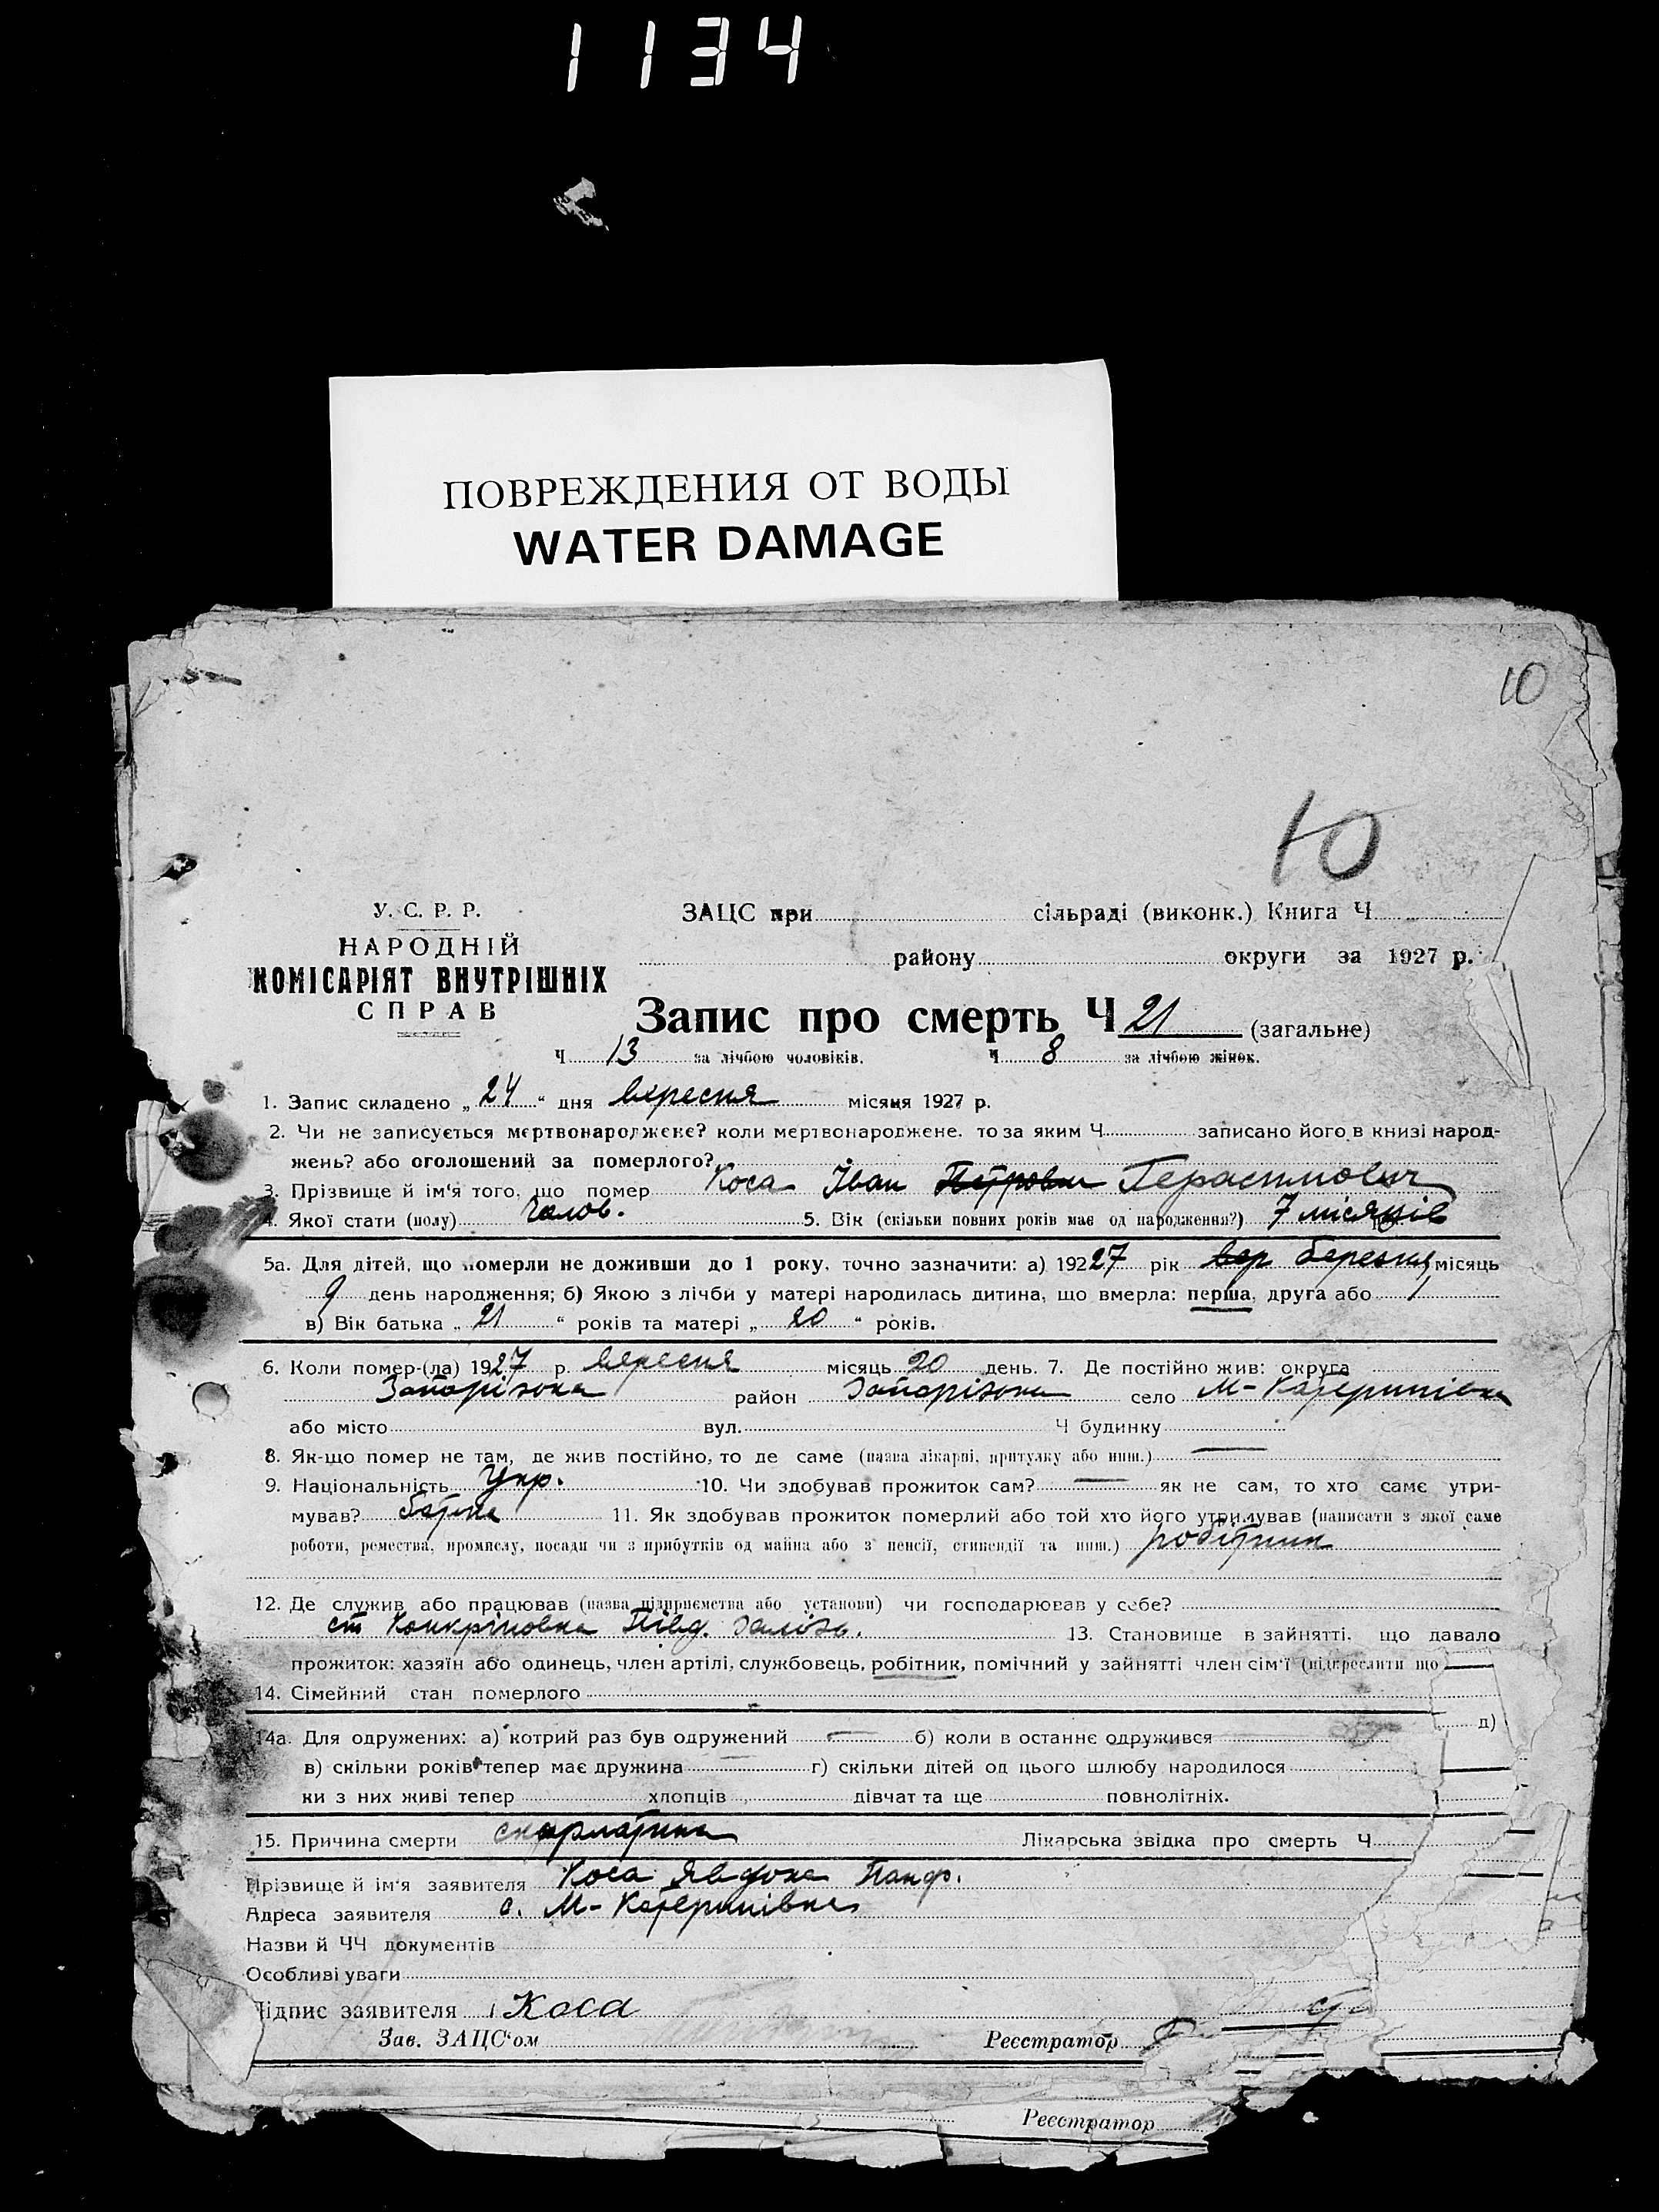 1134
ПОВРЕЖДЕНИЯ ОТ ВОДЫ
WATER DAMAGE
10
10
У. С. Р. Р.
НАРОДНІЙ
КОМІСАРІЯТ ВНУТРІШНІХ
СПРАВ
ЗАЦС при сільраді (виконк.) Книга Ч
району округи за 1927 р.
Запис про смерть Ч 21 (загальне)
Ч 13 за лічбою чоловіків. Ч 8 за лічбою жінок.
1. Запис складено „ 24 “ дня вересня місяця 1927 р.
2. Чи не записується мертвонароджене? коли мертвонароджене, то за яким Ч записано його в книзі народ-
жень? або оголошений за померлого?
3. Прізвище й ім'я того, що помер Коса Іван Петрович Герасимович
4. Якої стати (полу) Чолов. 5. Вік (скільки повних років має од народження?) 7 місяців
5а. Для дітей, що померли не доживши до 1 року, точно зазначити: а) 19227 рік вер березня місяць
9 день народження; б) Якою з лічби у матері народилась дитина, що вмерла: перша, друга або
в) Вік батька „ 21 “ років та матері „ 20 “ років.
6. Коли помер-(ла) 1927 р. вересня місяць 20 день. 7. Де постійно жив: округа
Запорізька район Запорізьки село М-Катеринівка
або місто вул. Ч будинку
8. Як-що помер не там, де жив постійно, то де саме (назва лікарні, притулку або инш.) —
9. Національність Укр. 10. Чи здобував прожиток сам? — як не сам, то хто саме утри-
мував? батько 11. Як здобував прожиток померлий або той хто його утримував (написати з якої саме
роботи, ремества, промислу, посади чи з прибутків од майна або з пенсії, стипендії та инш.) робітник
12. Де служив або працював (назва підприємства або установи) чи господарював у себе?
ст Канкріновка Півд. Заліз. 13. Становище в зайнятті, що давало
прожиток: хазяїн або одинець, член артілі, службовець, робітник, помічний у зайнятті член сім'ї (підкреслити що
14. Сімейний стан померлого
14а. Для одружених: а) котрий раз був одружений — б) коли в останнє одружився д)
в) скільки років тепер має дружина — г) скільки дітей од цього шлюбу народилося
ки з них живі тепер хлопців дівчат та ще повнолітніх.
15. Причина смерти скарлатина Лікарська звідка про смерть Ч
Прізвище й ім'я заявителя Коса Явдоха Панф.
Адреса заявителя с. М-Катеринівка
Назви й ЧЧ документів
Особливі уваги
Підпис заявителя Коса
Зав. ЗАЦС'ом Реєстратор
Реєстратор